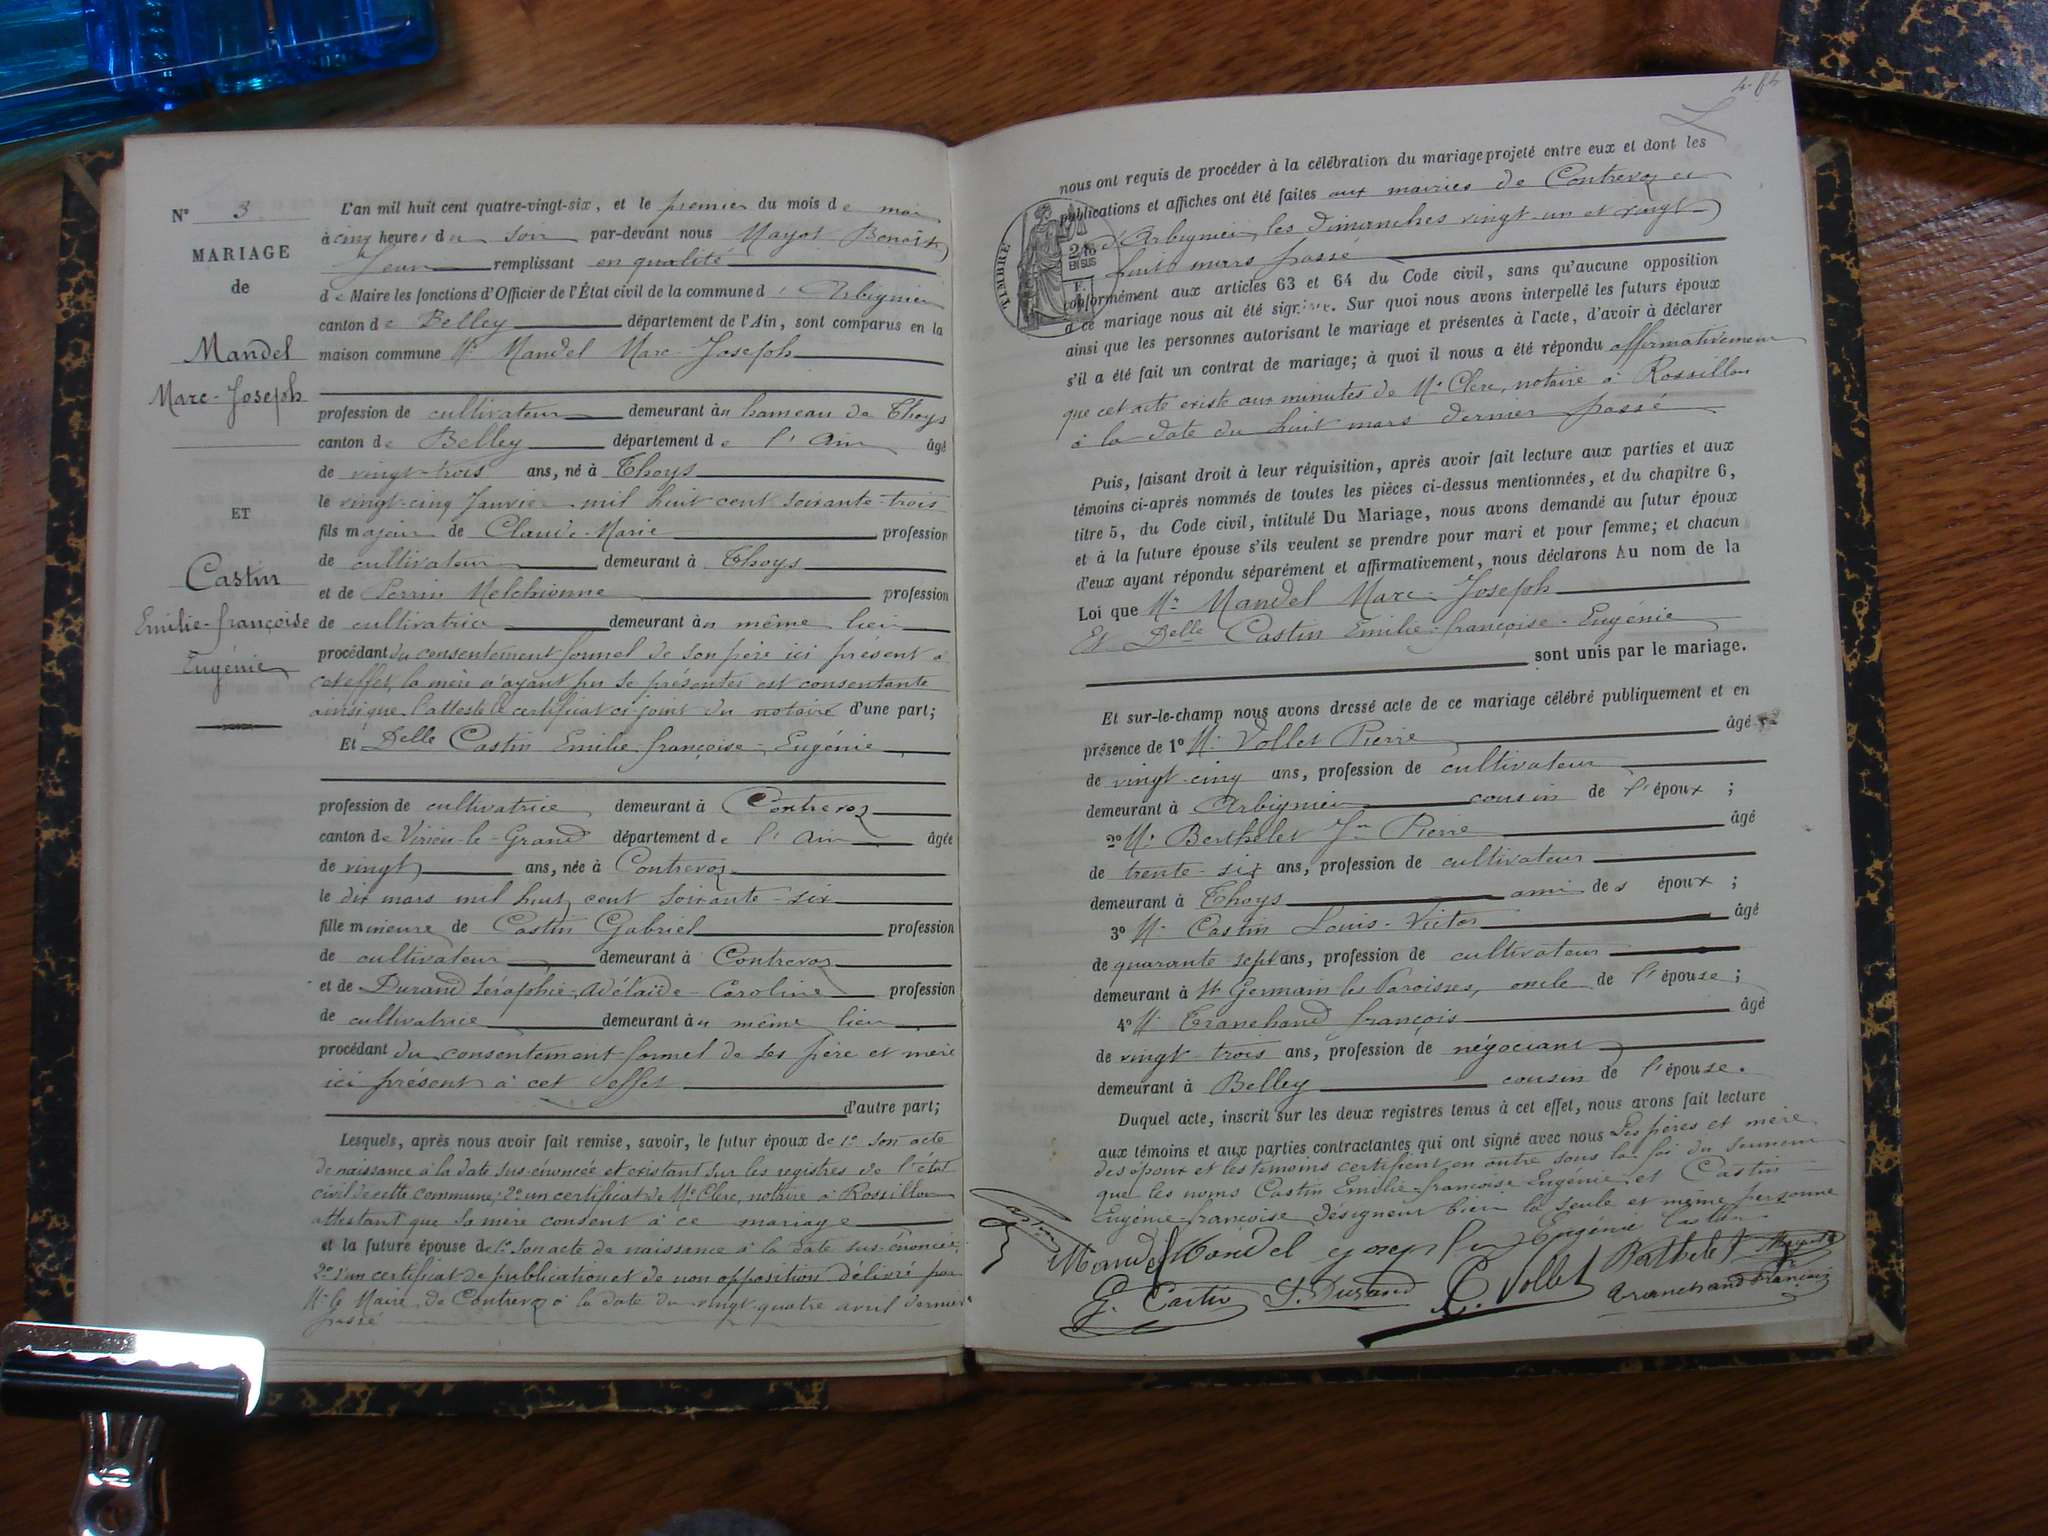 N° 3
MARIAGE
de
Mandel
Marc-Joseph
ET
Castin
Emilie-françoise
Eugénie
L'an mil huit cent quatre-vingt-six, et le premier du mois de mai
à cinq heures du soir par-devant nous Mayot Benoît
Jean remplissant en qualité
de Maire les fonctions d'Officier de l'État civil de la commune d'Arbignieu
canton de Belley département de l'Ain, sont comparus en la
maison commune Mr Mandel Marc-Joseph
profession de cultivateur demeurant au hameau de Thoys
canton de Belley département de l'Ain âgé
de vingt-trois ans, né à Thoys
le vingt-cinq Janvier mil huit cent soixante-trois
fils majeur de Claude-Marie profession
de cultivateur demeurant à Thoys
et de Perrin Melchionne profession
de cultivatrice demeurant au même lieu
procédant du consentement formel de son père ici présent à
cet effet, la mère n'ayant pu se présenter est consentante
ainsi que l'atteste le certificat ci-joint du notaire d'une part;
Et Delle Castin Emilie-françoise-Eugénie
profession de cultivatrice demeurant à Contrevoz
canton de Virieu-le-Grand département de l'Ain âgée
de vingt ans, née à Contrevoz
le dix mars mil huit cent soixante-six
fille mineure de Castin Gabriel profession
de cultivateur demeurant à Contrevoz
et de Durand Séraphie-Adélaïde-Caroline profession
de cultivatrice demeurant au même lieu
procédant du consentement formel de ses père et mère
ici présent à cet effet
d'autre part;
Lesquels, après nous avoir fait remise, savoir, le futur époux de 1° son acte
de naissance à la date sus-énoncée et existant sur les registres de l'état
civil de cette commune; 2° un certificat de Me Clerc, notaire à Rossillon
attestant que sa mère consent à ce mariage
et la future épouse de 1° son acte de naissance à la date sus-énoncée;
2° d'un certificat de publication et de non opposition délivré par
Mr le Maire de Contrevoz à la date du vingt quatre avril dernier
passé
nous ont requis de procéder à la célébration du mariage projeté entre eux et dont les
publications et affiches ont été faites aux mairies de Contrevoz et
d'Arbignieu, les dimanches vingt-un et vingt
huit mars passé
TIMBRE
2/10
EN SUS
conformément aux articles 63 et 64 du Code civil, sans qu'aucune opposition
à ce mariage nous ait été signifiée. Sur quoi nous avons interpellé les futurs époux
ainsi que les personnes autorisant le mariage et présentes à l'acte, d'avoir à déclarer
s'il a été fait un contrat de mariage; à quoi il nous a été répondu affirmativement
que cet acte existe aux minutes de Me Clerc, notaire à Rossillon
à la date du huit mars dernier passé
Puis, faisant droit à leur réquisition, après avoir fait lecture aux parties et aux
témoins ci-après nommés de toutes les pièces ci-dessus mentionnées, et du chapitre 6,
titre 5, du Code civil, intitulé Du Mariage, nous avons demandé au futur époux
et à la future épouse s'ils veulent se prendre pour mari et pour femme; et chacun
d'eux ayant répondu séparément et affirmativement, nous déclarons Au nom de la
Loi que Mr Mandel Marc-Joseph
Et Delle Castin Emilie-françoise-Eugénie
sont unis par le mariage.
Et sur-le-champ nous avons dressé acte de ce mariage célébré publiquement et en
présence de 1° Mr Vollet Pierre âgé
de vingt-cinq ans, profession de cultivateur
demeurant à Arbignieu cousin de l'époux ;
2° Mr Berthelet Jn Pierre âgé
de trente-six ans, profession de cultivateur
demeurant à Thoys ami des époux ;
3° Mr Castin Louis-Victor âgé
de quarante sept ans, profession de cultivateur
demeurant à St Germain les Paroisses, oncle de l'épouse ;
4° Mr Tranchand françois âgé
de vingt-trois ans, profession de négociant
demeurant à Belley cousin de l'épouse.
Duquel acte, inscrit sur les deux registres tenus à cet effet, nous avons fait lecture
aux témoins et aux parties contractantes qui ont signé avec nous Les pères et mère
des époux et les témoins certifient en outre sous la foi du serment
que les noms Castin Emilie-françoise-Eugénie et Castin
Eugénie-françoise désignent bien la seule et même personne
Castin Mandel Mandel joseph Eugénie Castin
G. Castin S. Durand P. Vollet Berthelet Tranchand François